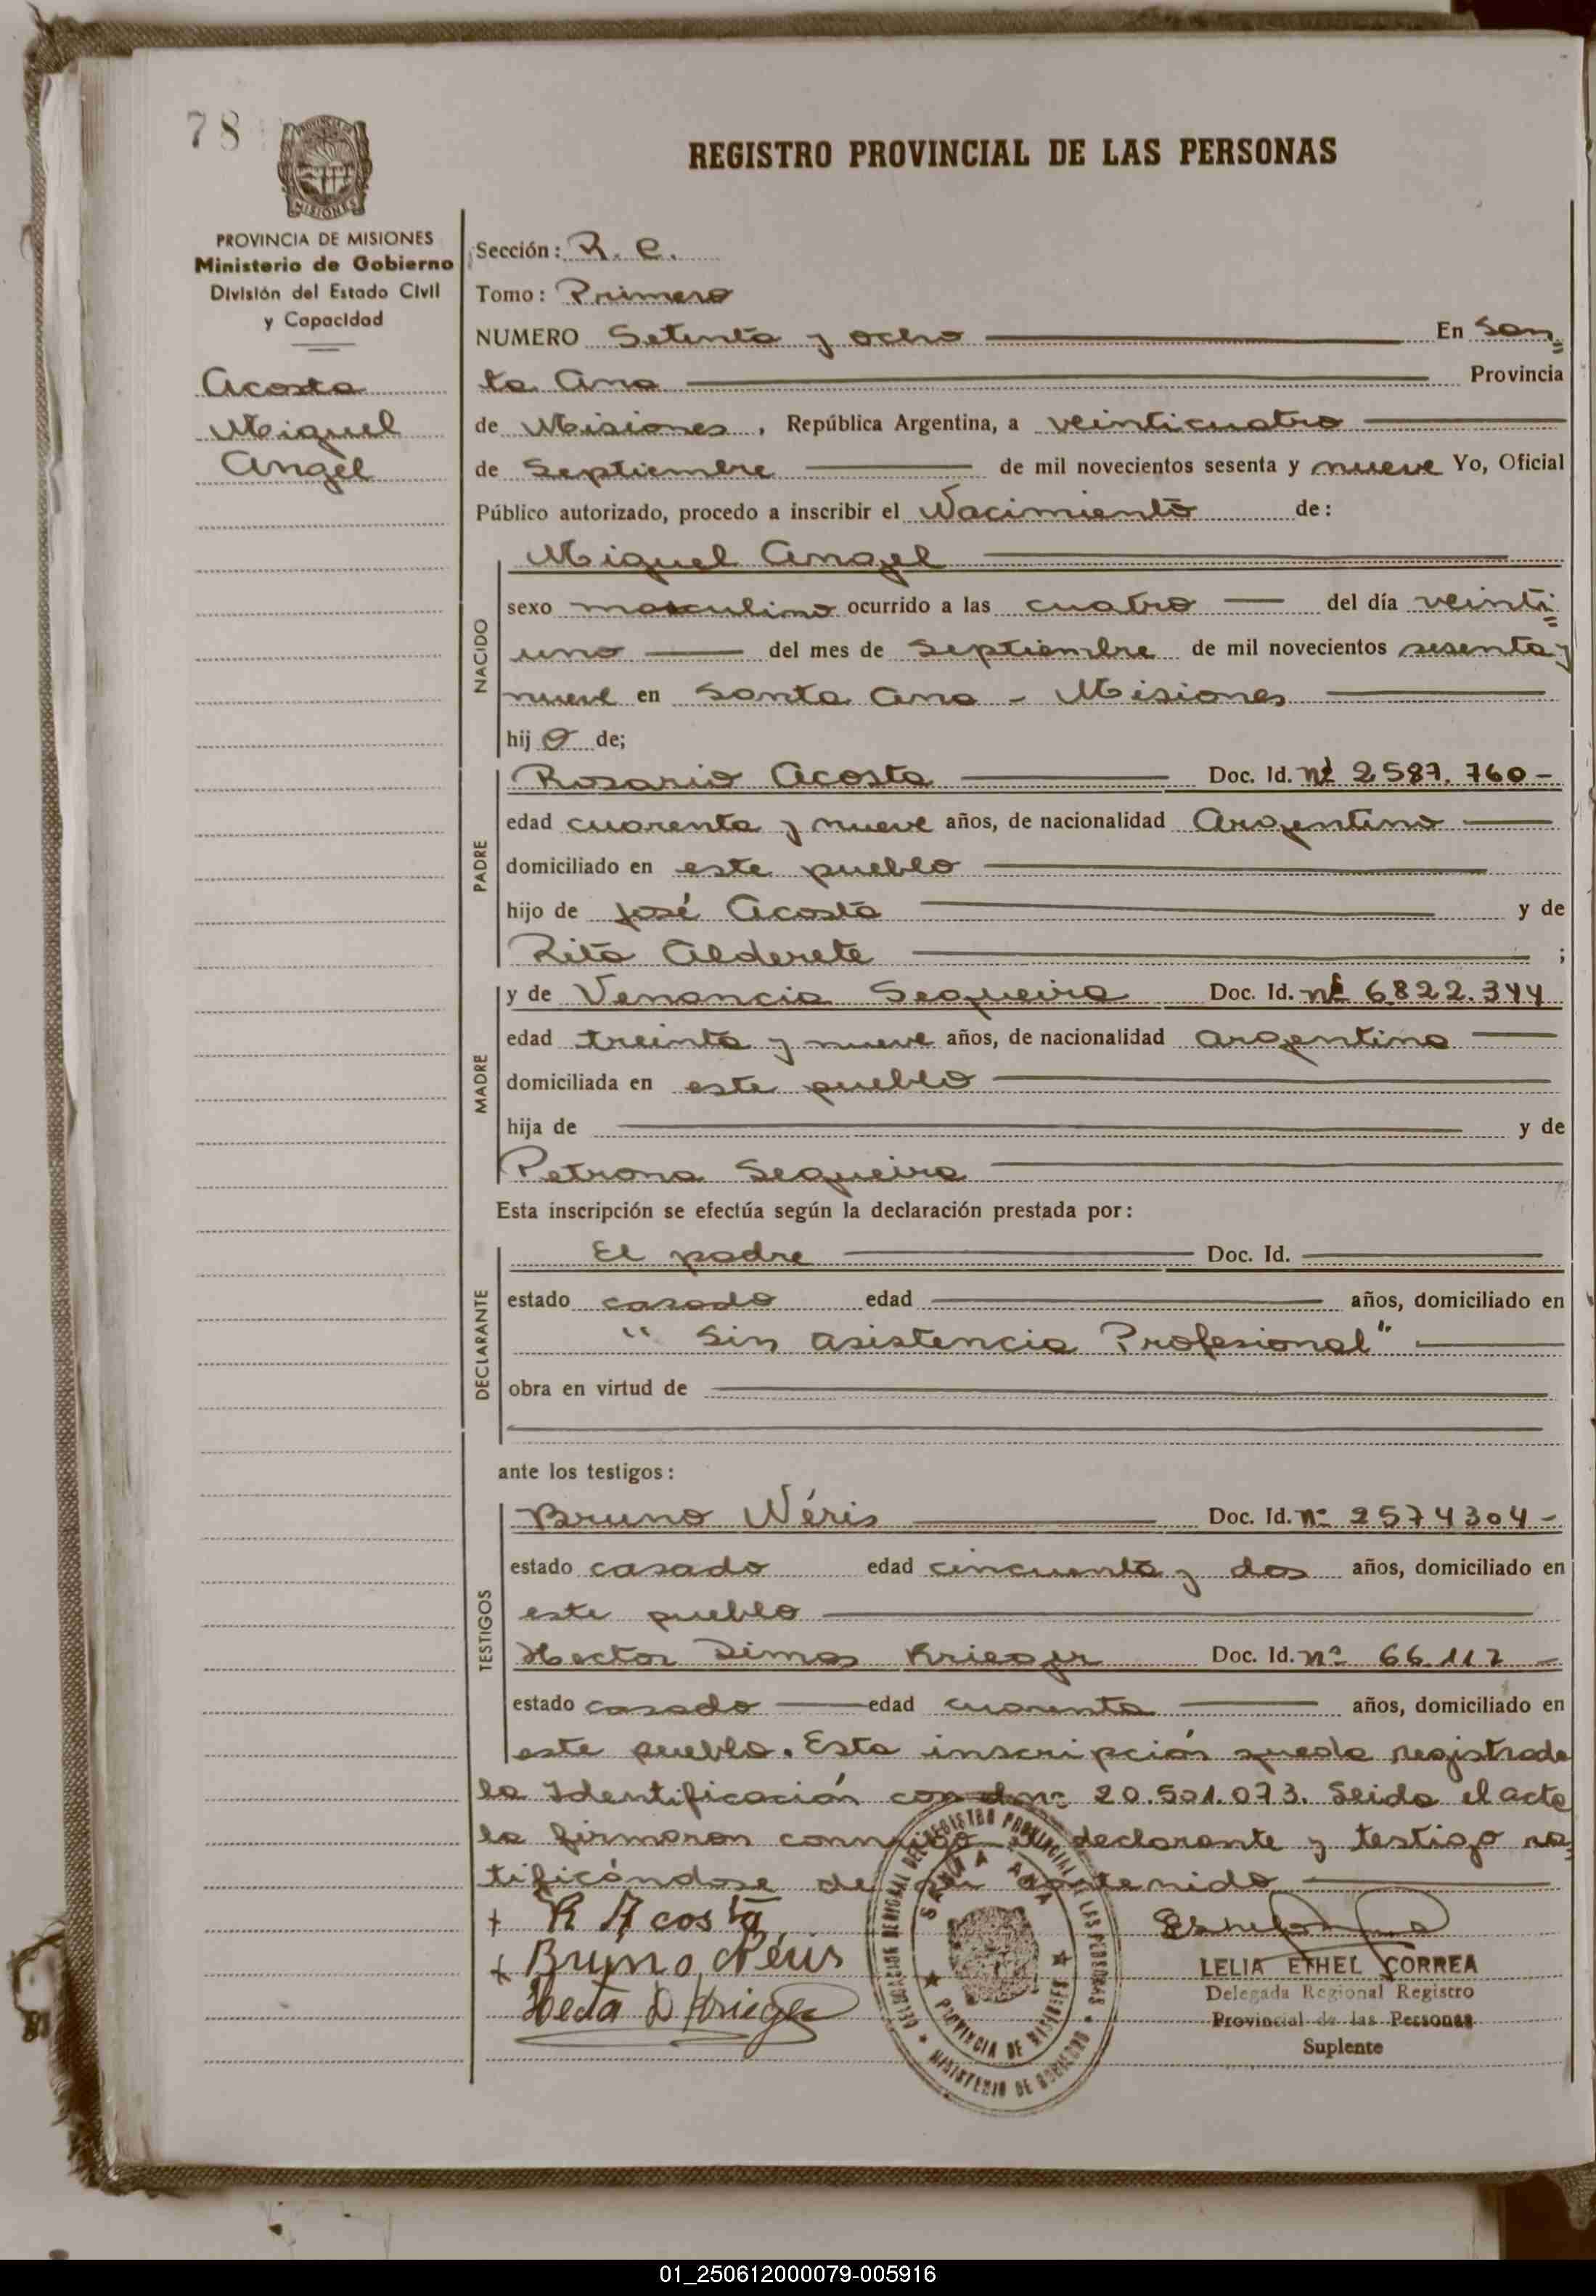 78
MISIONES
PROVINCIA DE MISIONES
Ministerio de Gobierno
División del Estado Civil
y Capacidad
Acosta
Miguel
Angel
REGISTRO PROVINCIAL DE LAS PERSONAS
Sección: R. C.
Tomo: Primero
NUMERO Setenta y ocho En San=
ta Ana Provincia
de Misiones, República Argentina, a veinticuatro
de Septiembre de mil novecientos sesenta y nueve Yo, Oficial
Público autorizado, procedo a inscribir el Nacimiento de:
NACIDO
Miguel Angel
sexo masculino ocurrido a las cuatro del día veinti=
uno del mes de Septiembre de mil novecientos sesenta y
nueve en Santa Ana - Misiones
hij o de;
PADRE
Rosario Acosta Doc. Id. Nº 2587.760-
edad cuarenta y nueve años, de nacionalidad Argentino
domiciliado en este pueblo
hijo de José Acosta y de
Rita Alderete ;
MADRE
y de Venancia Sequeira Doc. Id. nº 6822.344
edad treinta y nueve años, de nacionalidad argentina
domiciliada en este pueblo
hija de y de
Petrona Sequeira
Esta inscripción se efectúa según la declaración prestada por:
DECLARANTE
El padre Doc. Id.
estado casado edad años, domiciliado en
"Sin asistencia Profesional"
obra en virtud de
ante los testigos:
TESTIGOS
Bruno Néris Doc. Id. nº 2574304-
estado casado edad cincuenta y dos años, domiciliado en
este pueblo
Hector Dimas Krieger Doc. Id. nº 66.112 -
estado casado edad cuarenta años, domiciliado en
este pueblo. Esta inscripción queda registrada
la Identificación con el nº 20.501.073. Leida el acta
la firmaron conmigo el declarante y testigo ra=
tificándose de su contenido
+ R Acosta
+ Bruno Néris
Hector D Krieger
DELEGACION REGIONAL DEL REGISTRO PROVINCIAL DE LAS PERSONAS
SANTA ANA
PROVINCIA DE MISIONES
MINISTERIO DE GOBIERNO
LELIA ETHEL CORREA
Delegada Regional Registro
Provincial de las Personas
Suplente
01_250612000079-005916